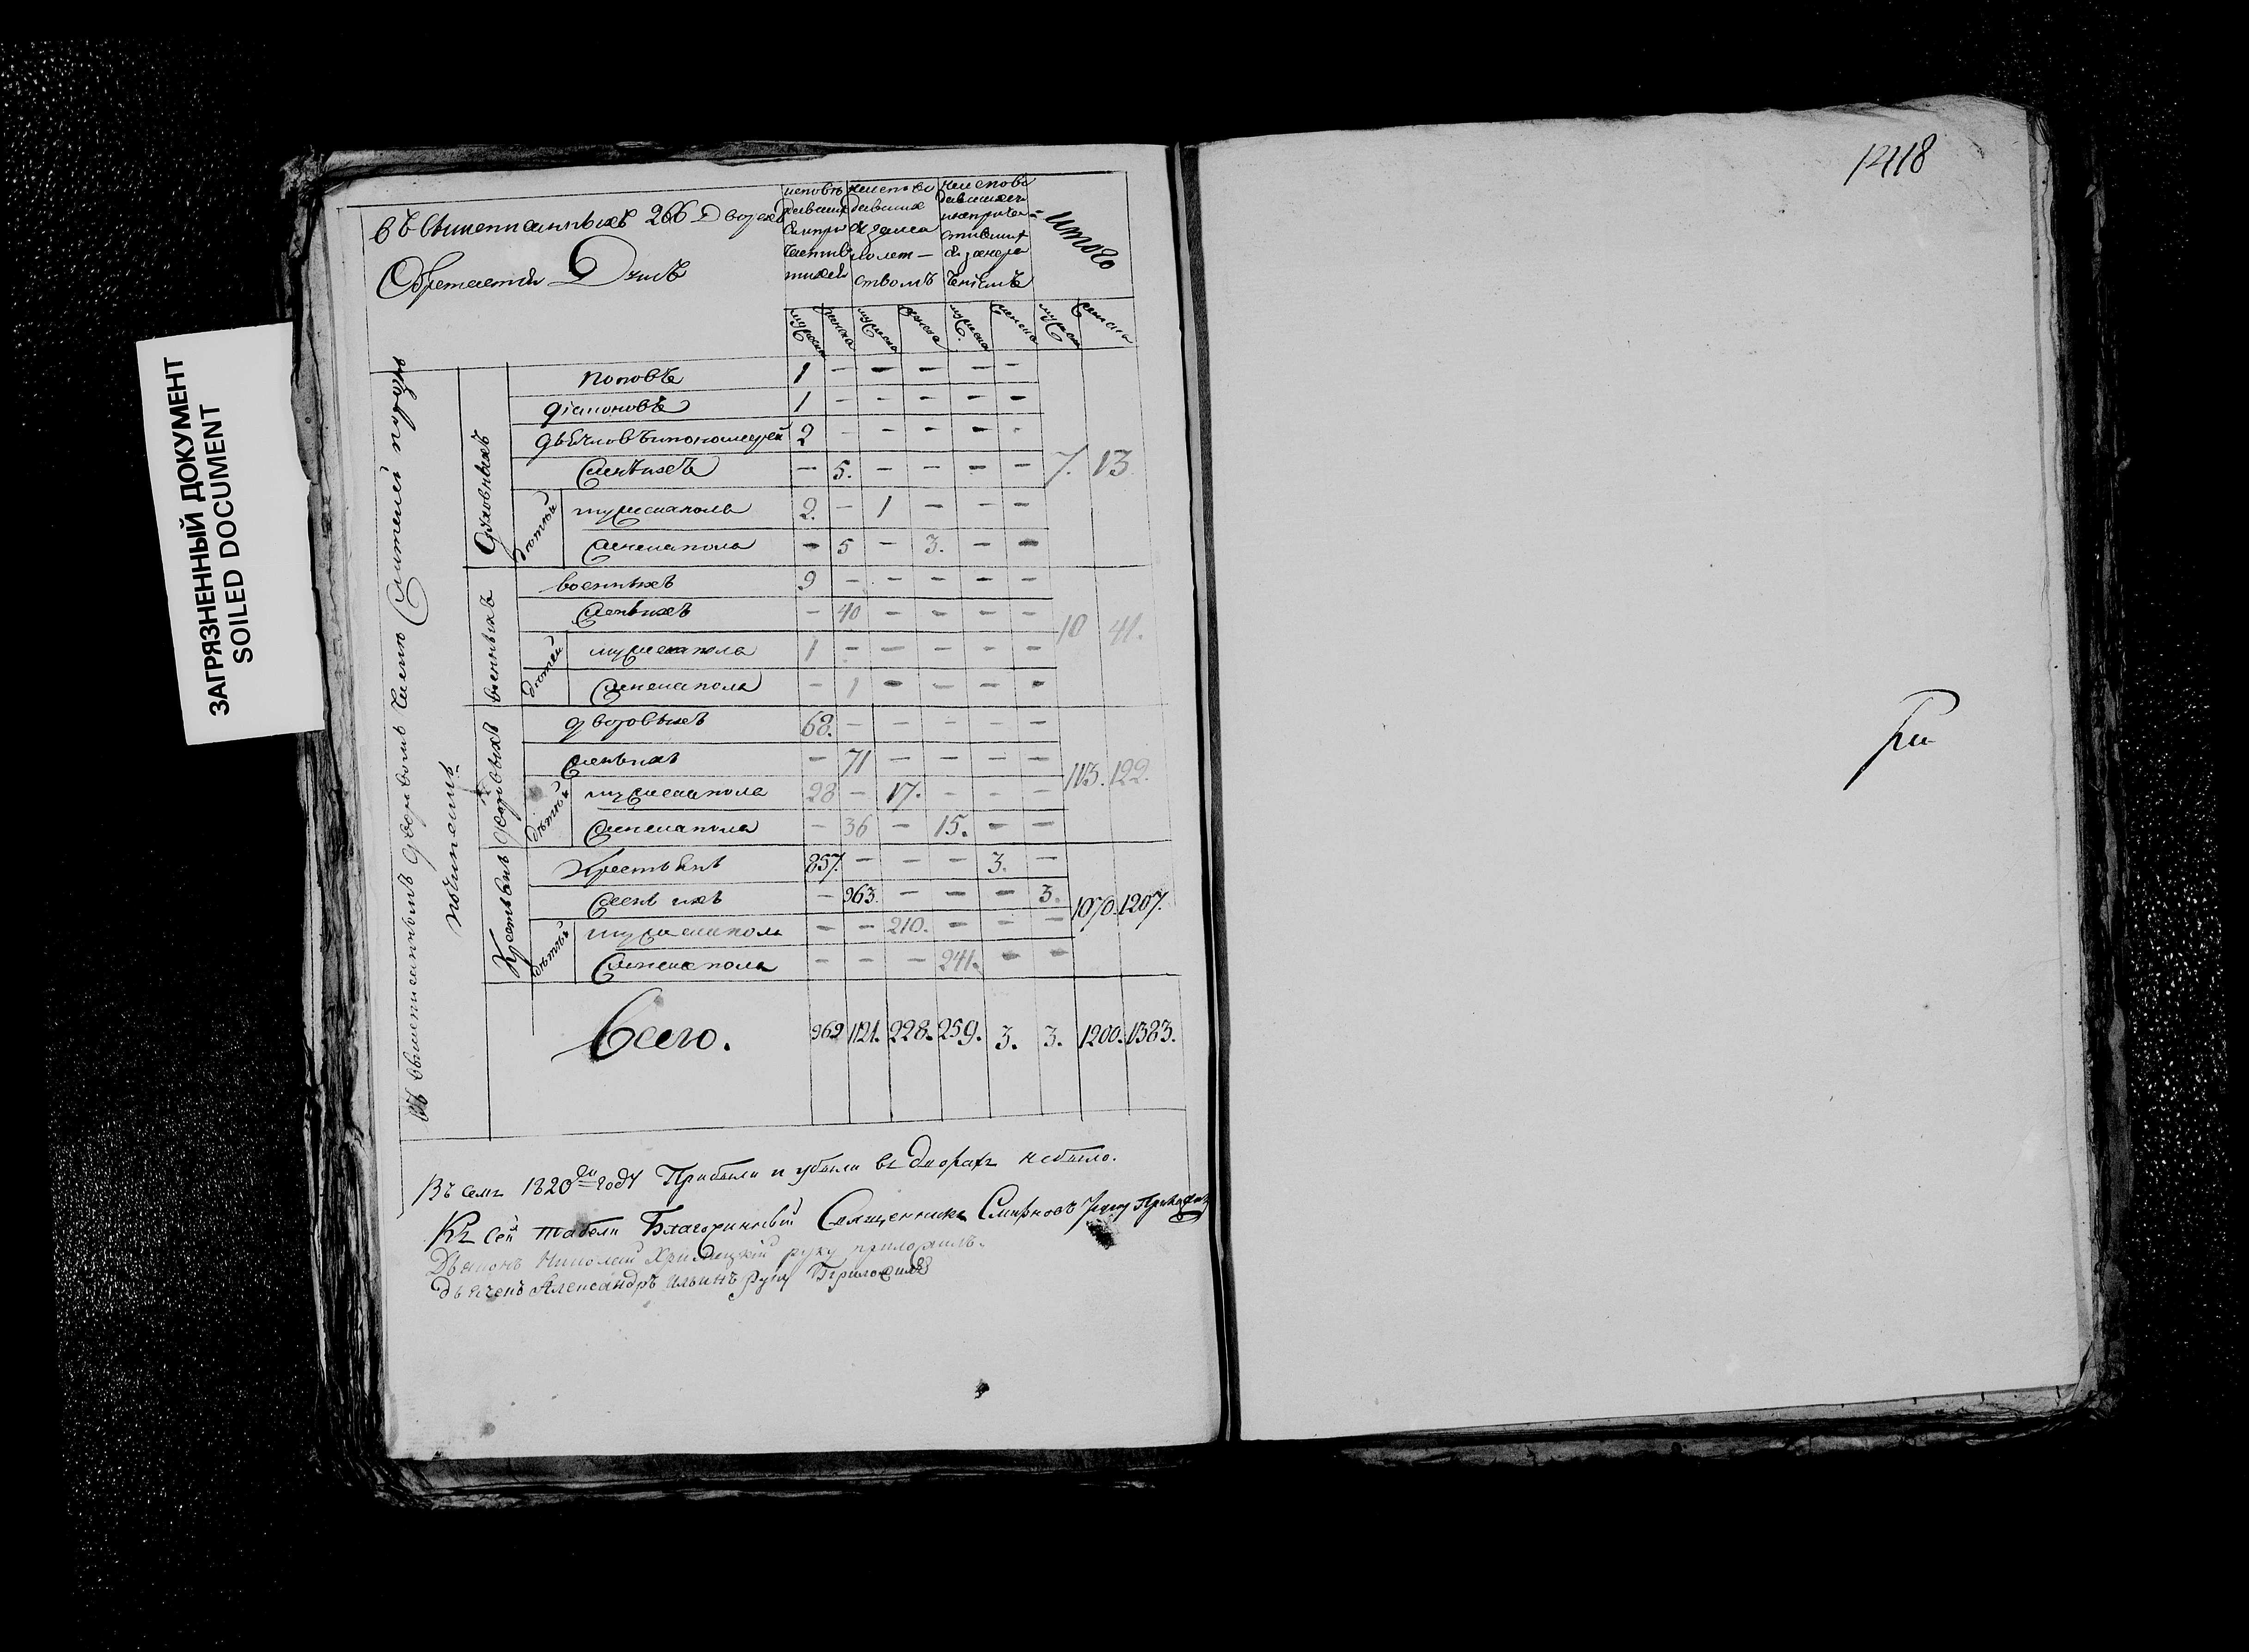 1418
ЗАГРЯЗНЕННЫЙ ДОКУМЕНТ
SOILED DOCUMENT
въ вышеписанныхъ 266 Дворахъ
Обретается Душъ
исповѣдавшихся и причастившихся
неисповѣдавшихся за малолетством
неисповедавшихся и непричастившихся за нерачениемъ
итого
мужеска женска мужеска женска мужеска женска мужеска женска
Духовныхъ
поповъ 1 — — — — —
диаконовъ 1 — — — — —
дьячковъ и пономарей 2 — — — — —
женъ ихъ — 5. — — — — 7. 13
детей
мужеска пола 2. — 1 — — —
женска пола — 5 — 3. — —
военныхъ
военныхъ 9 — — — — —
женъ ихъ — 40 — — — — 10 41.
детей
мужеска пола 1 — — — — —
женска пола — 1 — — — —
дворовыхъ
дворовыхъ 68. — — — — —
женъ ихъ — 71 — — — — 113. 122.
детей
мужеска пола 28 — 17. — — —
женска пола — 36 — 15. — —
Крестьянъ
Крестьянъ 857. — — — 3. —
женъ ихъ — 963. — — — 3. 1070. 1207.
детей
мужеска пола — — 210. — — —
женска пола — — — 241. — —
Всего. 962 1121. 228. 259. 3. 3. 1200. 1383.
Въ семъ 1820 году Прибыли и убыли въ дворахъ небыло.
Къ сей табели Благочинный Священникъ Смирновъ руку Приложилъ
Дьяконъ Николай руку приложилъ.
дьячекъ Александръ Ильинъ руку Приложилъ